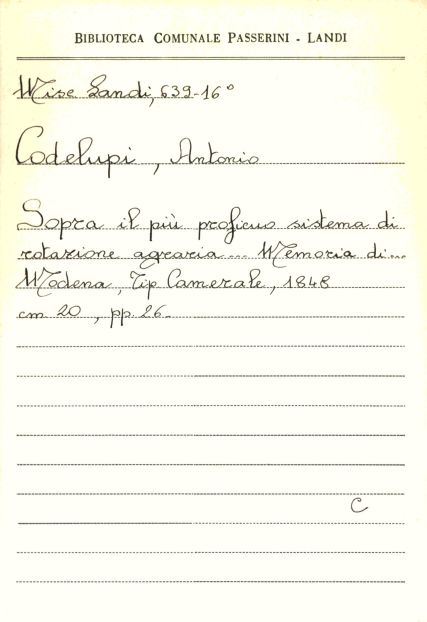 BIBLIOTECA COMUNALE PASSERINI - LANDI
Misc Landi, 639-16°
Codelupi, Antonio
Sopra il più proficuo sistema di
rotazione agraria... Memoria di...
Modena, Tip Camerale, 1848
cm 20, pp. 26.
C